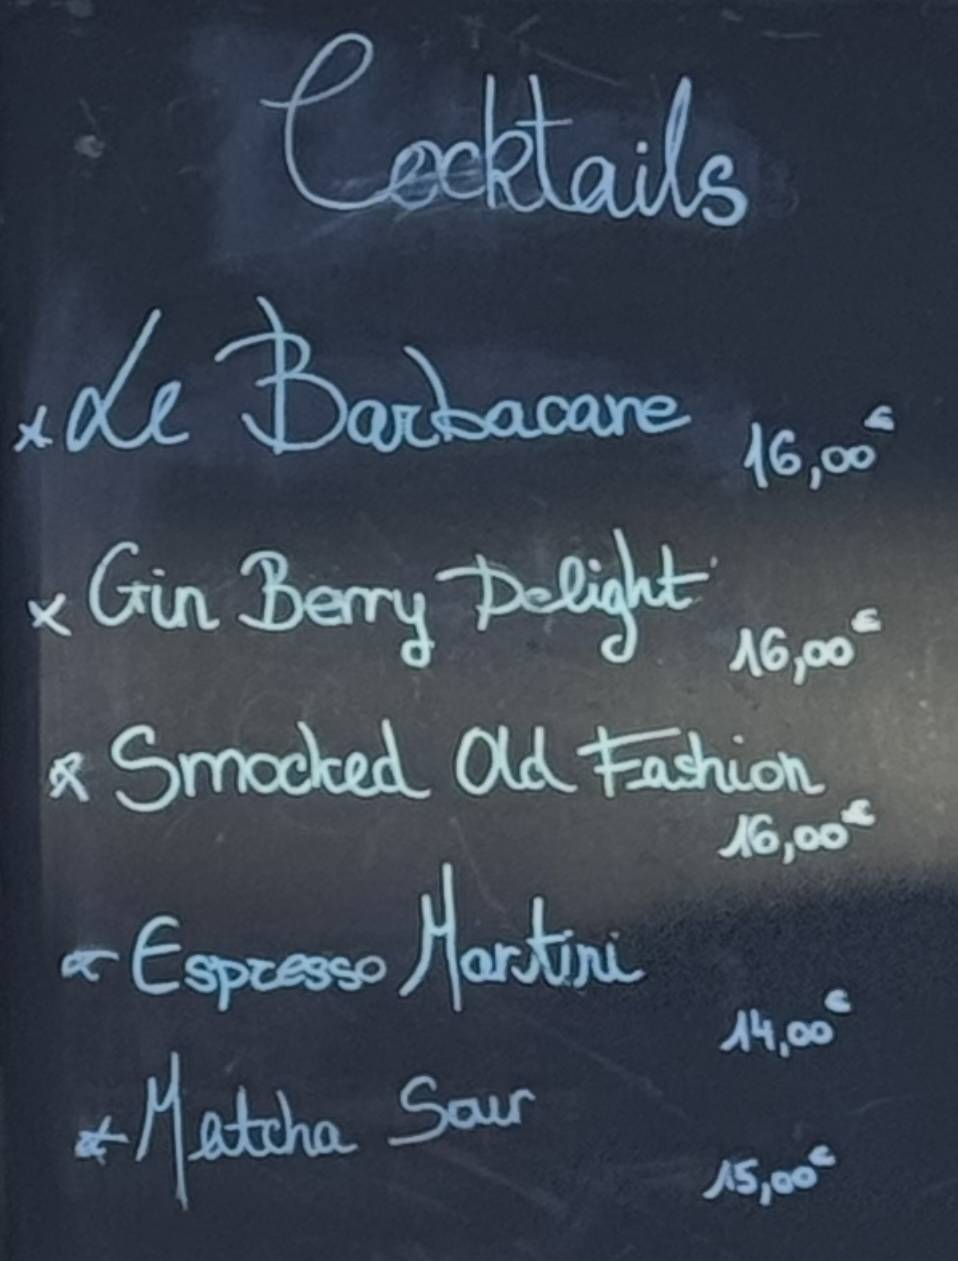 Cocktails
x Le Barbacane 16,00€
x Gin Berry Delight 16,00€
x Smocked Old Fashion
16,00€
x Espresso Martini
14,00€
x Matcha Sour
15,00€